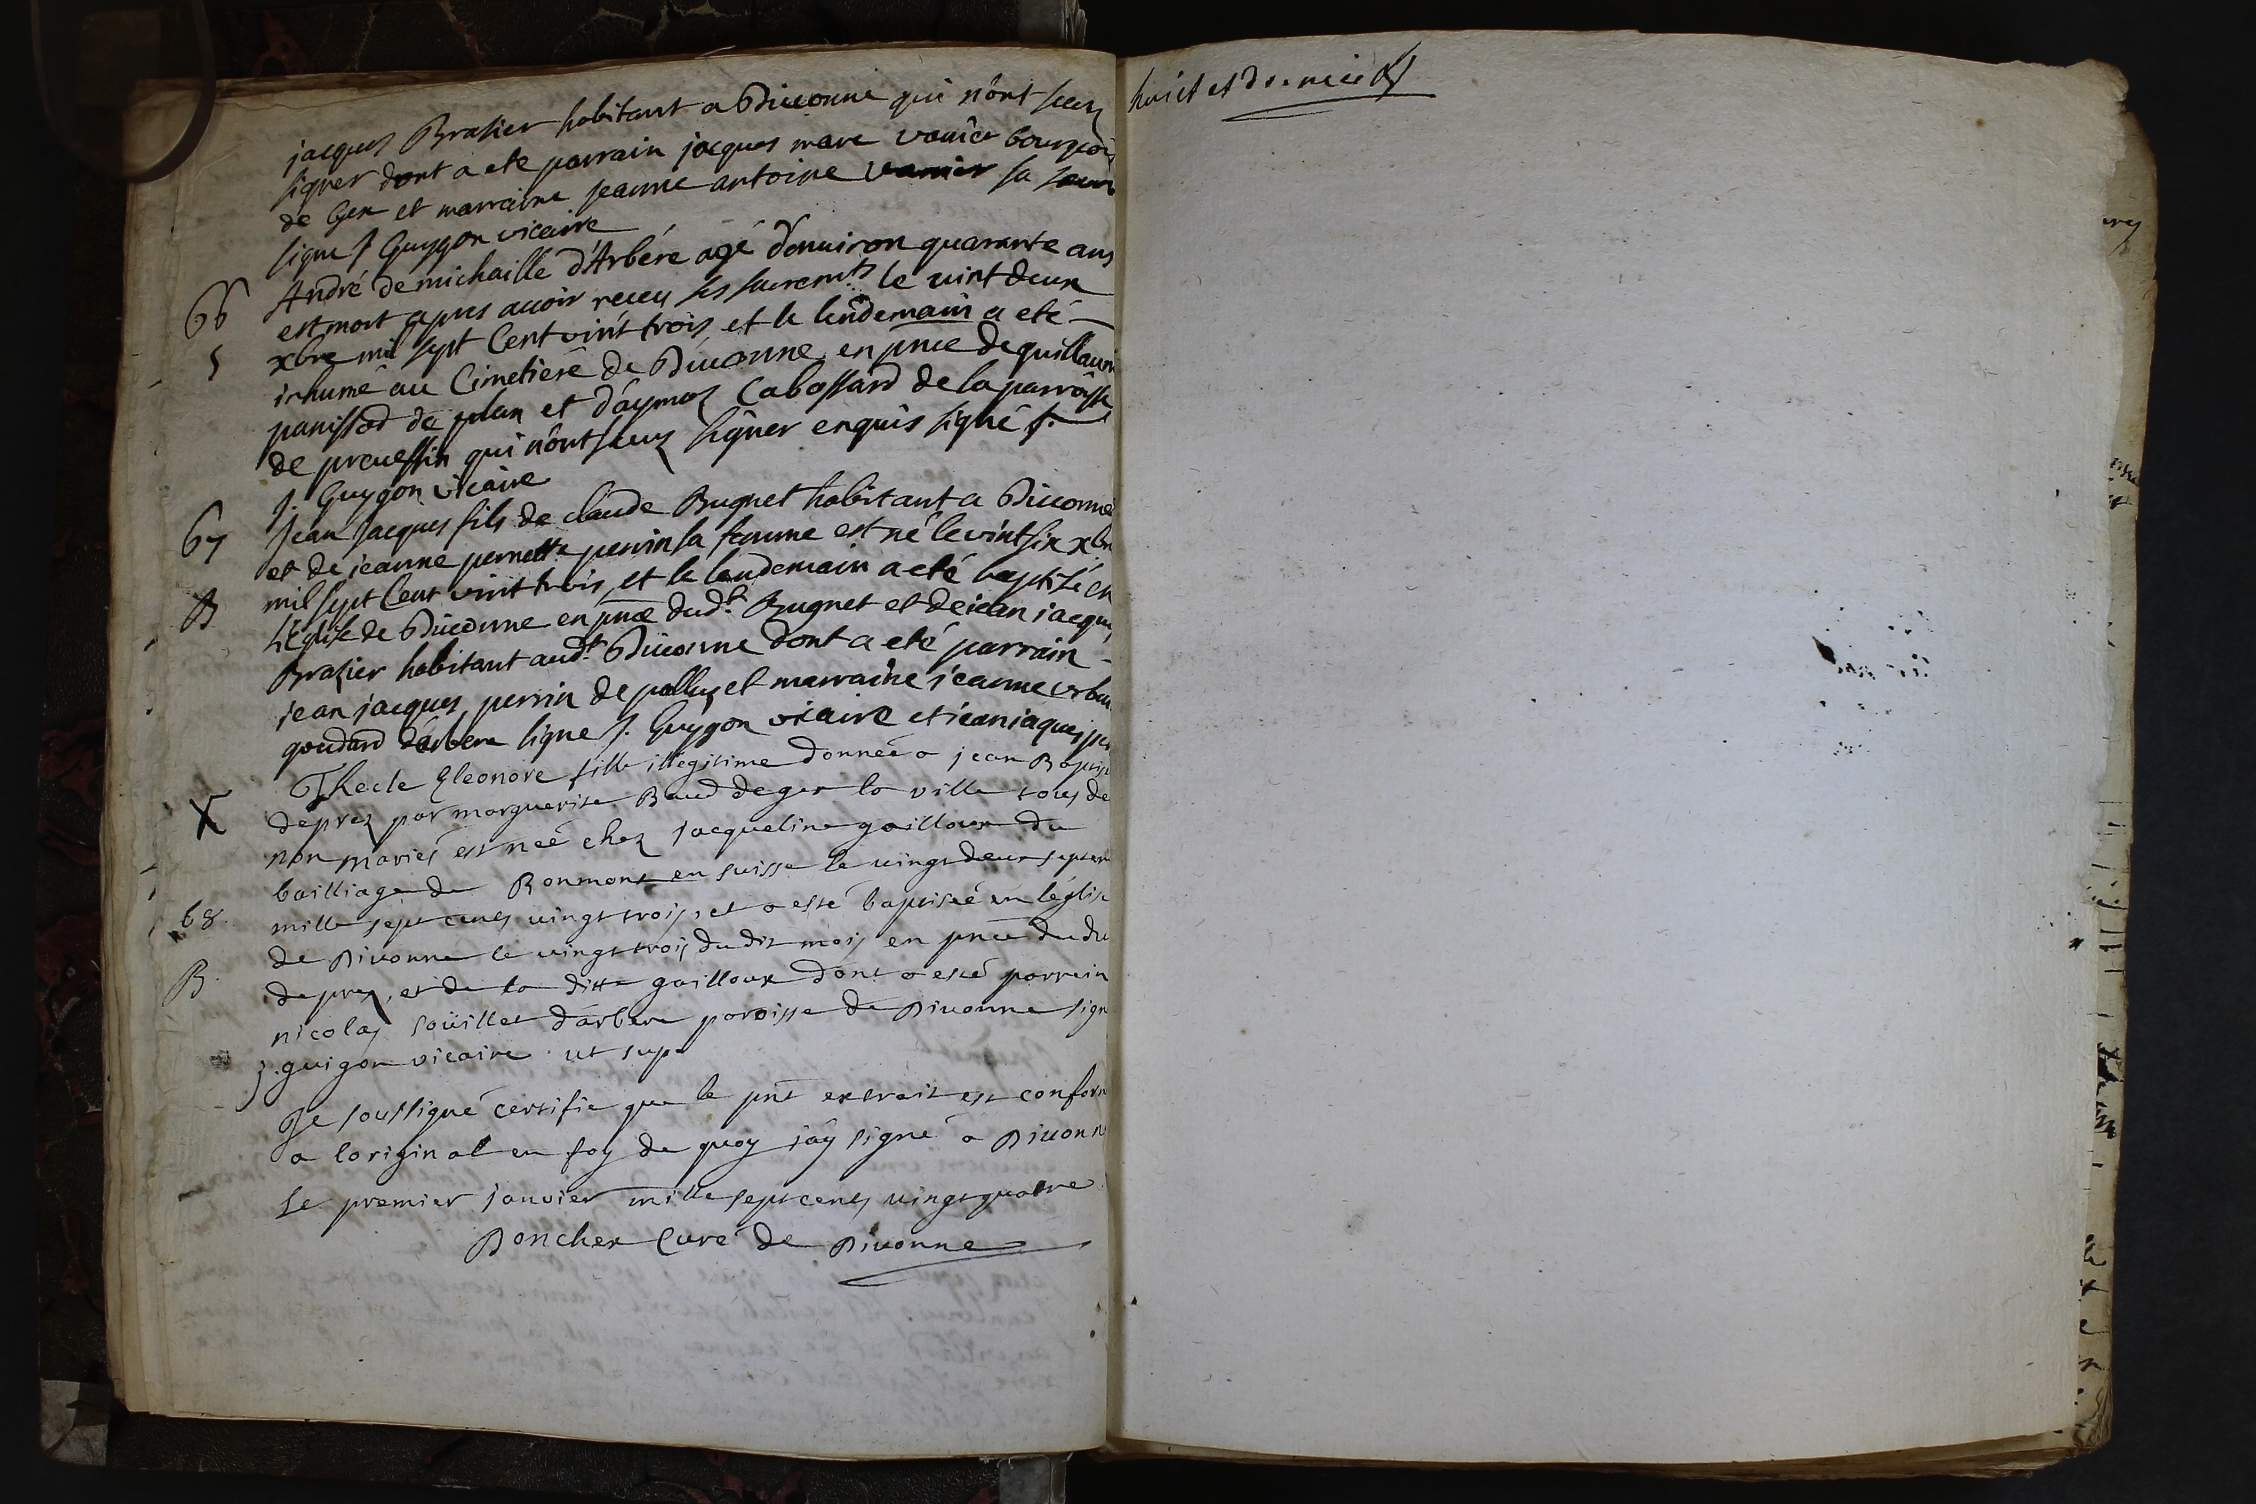 jacques Brasier habitant a Divonne qui n'ont sceu
signer dont a eté parrain jacques marc vanier bourgeois
de Gex et marraine jeanne antoine vanier sa soeur
signe J Guygon vicaire
66 André de michaille d'Arbére agé d'enuiron quarante ans
est mort apres auoir receu ses sacremts le vint deux
S xbre mil sept Cent vint trois et le lendemain a eté
inhumé au Cimetiére de Divonne en pnce de guillaume
panissod de plan et d'aymoz Cabossard de la parroisse
de preuessin qui n'ont sceus signer enquis signé
J. Guygon vicaire
67 Jean Jacques fils de claude Bugnet habitant a Divonne
et de jeanne pernette perrin sa femme est né le vint six xbre
mil sept Cent vint trois, et le lendemain a eté baptisé en
B L'Eglise de Divonne en pnce dudt Bugnet et de jean jacques
Brasier habitant audt Divonne dont a eté parrain
jean jacques perrin de et marraine jeanne
goudard d'arbere signe J. Guygon vicaire et jean jaques
Thecle Eleonore fille illegitime donnée a jean Baptiste
X deprez par marguerite Baud de gex la ville tous deux
non mariés est neé chez jacqueline gailloux du
bailliage de Bonmont en suisse le uingt deux septem
68. mille sept cents uingt trois, et a esté baptiseé en l'église
de Diuonne le uingt trois du dit mois en pnce du du
B. deprez, et de la ditte gailloux dont a esté parrein
nicolas soüillet d'arbere paroisse de Diuonne signe
J. guigon vicaire ut supa
Je soussigné certifie que le pnt extrait est conforme
a l'original en foy de quoy j'ay signé a Diuonne
le premier januier mille sept cents uingt quatre
Boncher Curé de Diuonne
huict et dernier